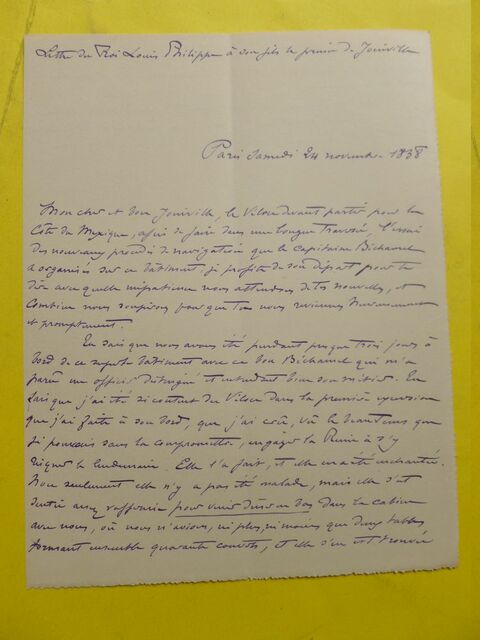 Lettre du Roi Louis Philippe à son fils le prince de Joinville
Paris Samedi 24 novembre 1838
Mon cher et bon Joinville, le Véloce devant partir pour la
Côte du Mexique, afin de faire dans une longue traversée, l'essai
des nouveaux procédés de navigation que le capitaine Béchameil
a organisés sur ce bâtiment, je profite de son départ pour te
dire avec quelle impatience nous attendons de tes nouvelles, et
combien nous soupirons pour que tu nous reviennes heureusement
et promptement.
Tu sais que nous avons été pendant presque trois jours à
bord de ce superbe bâtiment avec ce bon Béchameil qui m'a
paru un officier distingué et entendant bien son métier. Tu
sais que j'ai été si content du Véloce dans la première excursion
que j'ai faite à son bord, que j'ai cru, vu le beau temps que
je pouvais sans la compromettre, engager la Reine à s'y
risquer le lendemain. Elle l'a fait, et elle en a été enchantée.
Non seulement elle n'y a pas été malade, mais elle s'est
sentie assez pour venir dîner en bas dans la cabine
avec nous, où nous n'avions, ni plus, ni moins que deux tables
formant ensemble quarante couverts, et elle s'en est trouvée